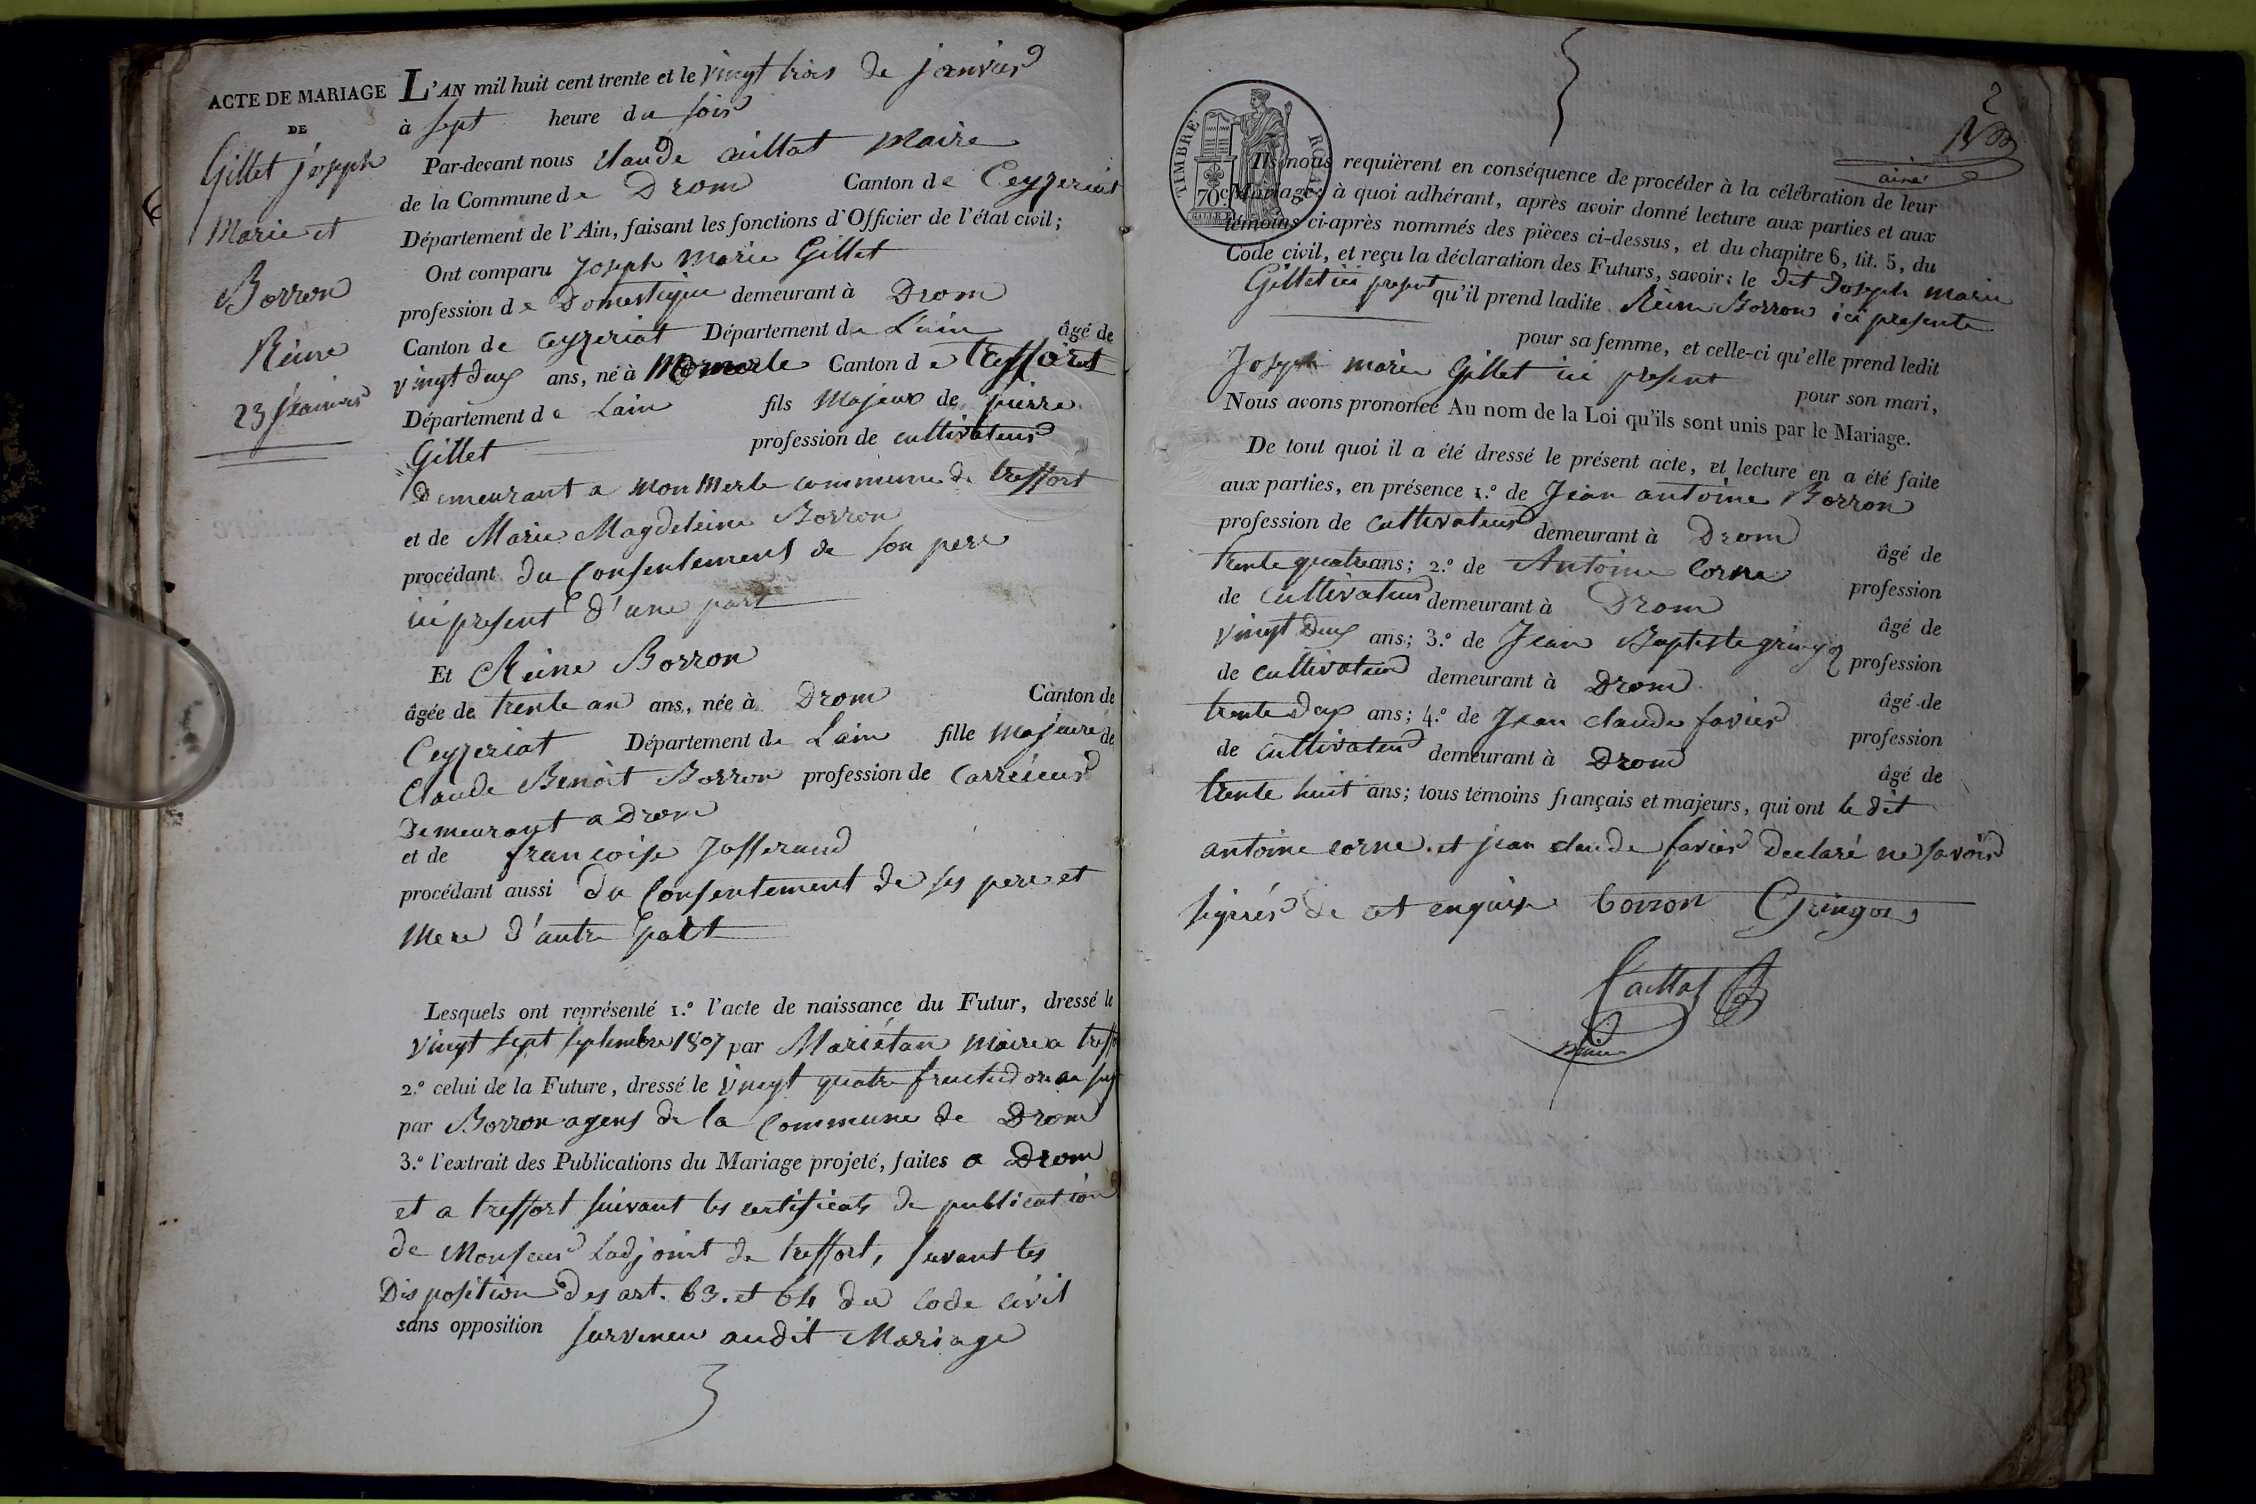 ACTE DE MARIAGE
DE
Gillet joseph
Marie et
Borron
Reine
23 janvier
L'AN mil huit cent trente et le vingt trois de janvier
à sept heure du soir
Par-devant nous claude caillat maire
de la Commune de Drom Canton de Ceyzeriat
Département de l'Ain, faisant les fonctions d'Officier de l'état civil;
Ont comparu Joseph Marie Gillet
profession de Domestique demeurant à Drom
Canton de Ceyzeriat Département de Lain âgé de
vingt deux ans, né à Canton de treffort
Département de Lain fils Majeur de pierre
Gillet profession de cultivateur
Demeurant a Mon Merle commune de treffort
et de Marie Magdeleine Borron
procédant du Consentement de son pere
ici present d'une part
Et Reine Borron
âgée de trente an ans, née à Drom Canton de
Ceyzeriat Département de Lain fille Majeure de
Claude Benoit Borron profession de Carrieur
Demeurant a Drom
et de francoise Josserand
procédant aussi du Consentement de ses pere et
Mere d'autre part
Lesquels ont représenté 1.º l'acte de naissance du Futur, dressé le
vingt sept septembre 1807 par Mariétan Maire a treff
2.º celui de la Future, dressé le vingt quatre fructidor an sept
par Borron agens de la Commune de Drom
3.º l'extrait des Publications du Mariage projeté, faites a Drom
et a treffort suivant les certificats de publication
de Monsieur Ladjoint de treffort, suvant les
Disposition des art. 63. et 64 du Code Civil
sans opposition surveneu audit Mariage
2
ainé
TIMBRE ROYAL
70c
Ils nous requièrent en conséquence de procéder à la célébration de leur
Mariage; à quoi adhérant, après avoir donné lecture aux parties et aux
témoins ci-après nommés des pièces ci-dessus, et du chapitre 6, tit. 5, du
Code civil, et reçu la déclaration des Futurs, savoir: le dit Joseph marie
Gillet ici present qu'il prend ladite Reine Borron ici presente
pour sa femme, et celle-ci qu'elle prend ledit
Joseph marie Gillet ici present pour son mari,
Nous avons prononcé Au nom de la Loi qu'ils sont unis par le Mariage.
De tout quoi il a été dressé le présent acte, et lecture en a été faite
aux parties, en présence 1.º de Jean antoine Borron
profession de Cultivateur demeurant à Drom âgé de
trente quatre ans; 2.º de Antoine Corne profession
de Cultivateur demeurant à Drom âgé de
vingt deux ans; 3.º de Jean Baptiste gringoz profession
de cultivateur demeurant à Drom âgé de
trente deux ans; 4.º de Jean claude favier profession
de cultivateur demeurant à Drom âgé de
trente huit ans; tous témoins français et majeurs, qui ont le dit
antoine corne et jean claude favier declaré ne savoir
signés de cet enquis borron Gringoz
Caillat
maire